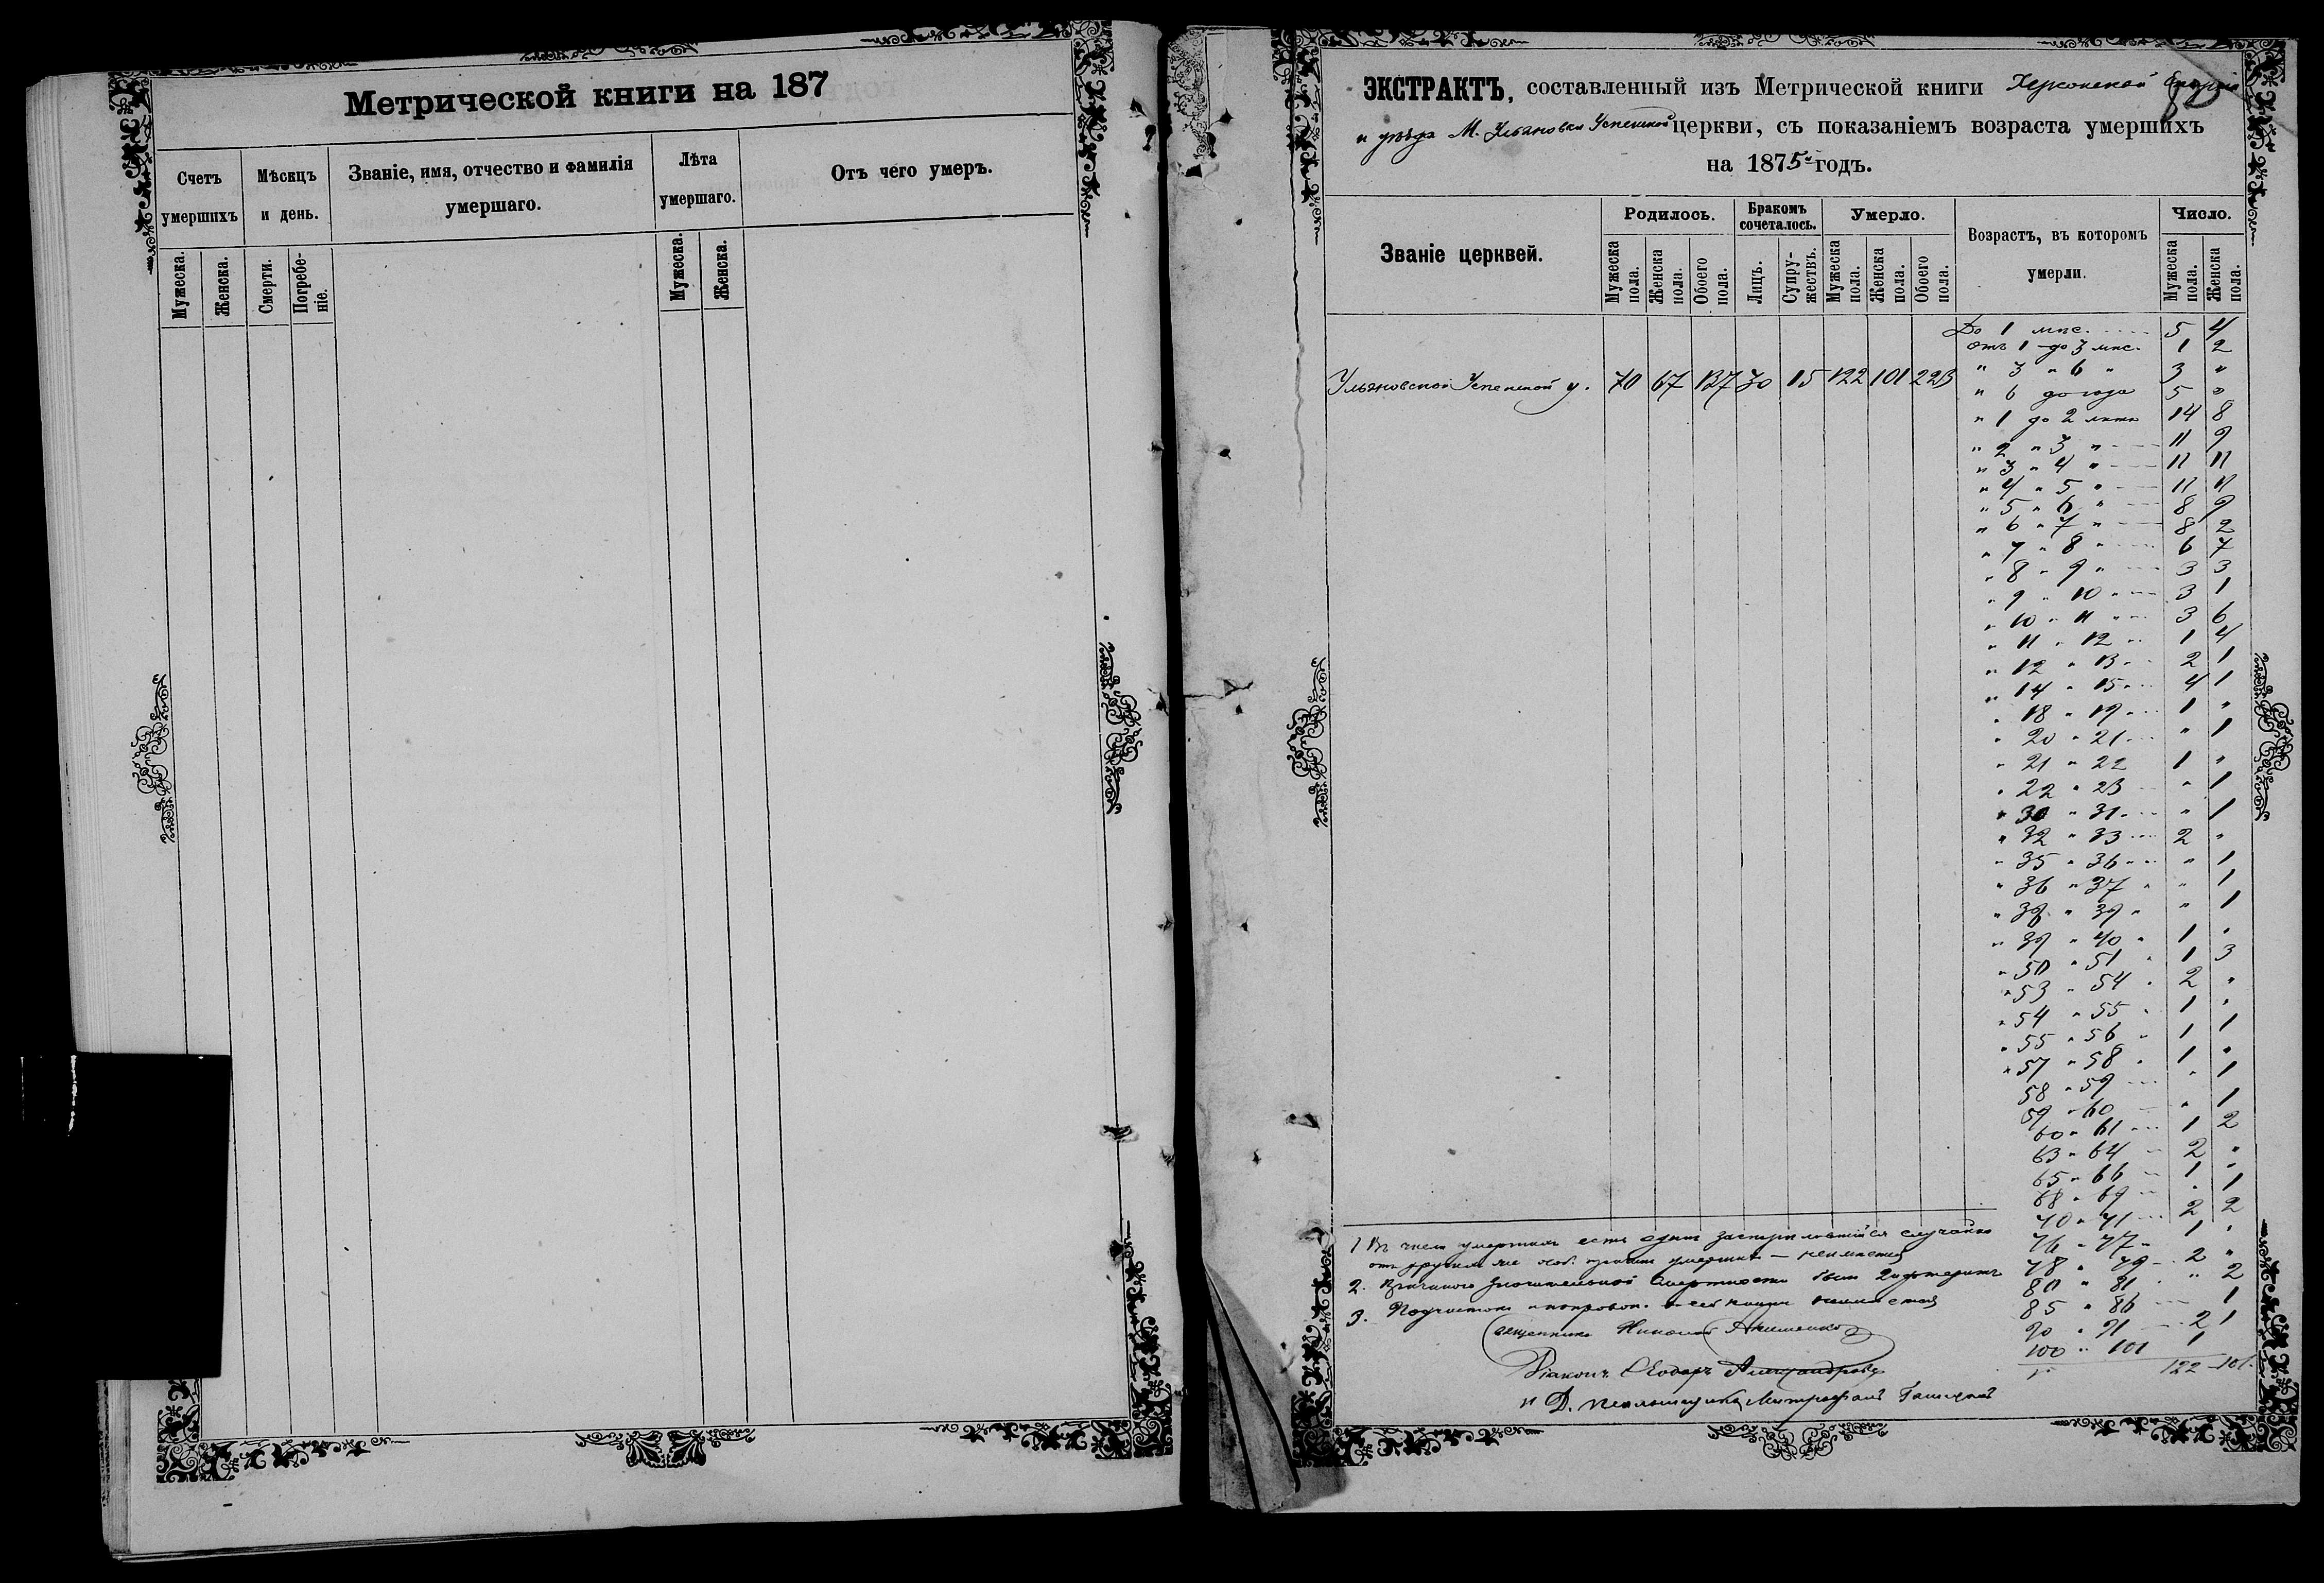 Метрической книги на 187
Счетъ умершихъ
Мѣсяцъ и день.
Званіе, имя, отчество и фамилія умершаго.
Лѣта умершаго.
Отъ чего умеръ.
Мужеска.
Женска.
Смерти.
Погребеніе.
Мужеска.
Женска.
ЭКСТРАКТЪ, составленный изъ Метрической книги Херсонской Епархіи
и уѣзда М. Ульяновки Успенской церкви, съ показаніемъ возраста умершихъ
на 1875 годъ.
Званіе церквей.
Родилось.
Бракомъ сочеталось.
Умерло.
Возрастъ, въ которомъ умерли.
Число.
Мужеска пола.
Женска пола.
Обоего пола.
Лицъ.
Супружествъ.
Мужеска пола.
Женска пола.
Обоего пола.
Мужеска пола.
Женска пола.
Ульяновской Успенской ц. 70 67 137 30 15 122 101 223
До 1 мѣс. 5 4
отъ 1 до 3 мѣс. 1 2
" 3 " 6 " 3 "
" 6 до года 5 "
" 1 до 2 лѣтъ 14 8
" 2 " 3 " 11 9
" 3 " 4 " 11 11
" 4 " 5 " 11 11
" 5 " 6 " 8 9
" 6 " 7 " 8 2
" 7 " 8 " 6 7
" 8 " 9 " 3 3
" 9 " 10 " 3 1
" 10 " 11 " 3 6
" 11 " 12 " 1 4
" 12 " 13 " 2 1
" 14 " 15 " 4 1
" 18 " 19 " 1 "
" 20 " 21 " 1
" 21 " 22 1 "
" 22 " 23 " 1
" 30 " 31 " 1
" 32 " 33 2 "
" 35 " 36 " 1
" 36 " 37 " " 1
" 38 " 39 " " 1
" 39 " 40 " 1 "
" 50 " 51 " 1 3
" 53 " 54 " 2 "
" 54 " 55 " 1 "
" 55 " 56 " 1 1
" 57 " 58 " 1 "
58 " 59 " 1
59 " 60 " 1
60 " 61 1 2
63 " 64 2 "
65 " 66 1 "
68 " 69 " 1
70 " 71 2 2
76 " 77 1 "
78 " 79 2 "
80 " 81 " 2
85 " 86 1
90 " 91 2 1
100 " 101 1
122 101.
1 Въ числѣ умершихъ есть одинъ случайно
отъ другихъ же умершихъ — неимѣется
2. Причиною значительной смертности былъ дифтеритъ
3. Подчистокъ и поправок. въ сей книгѣ неимѣется
Священникъ Николай
Діаконъ Ѳеодоръ Александровъ
И Д. псаломщика Митрофанъ